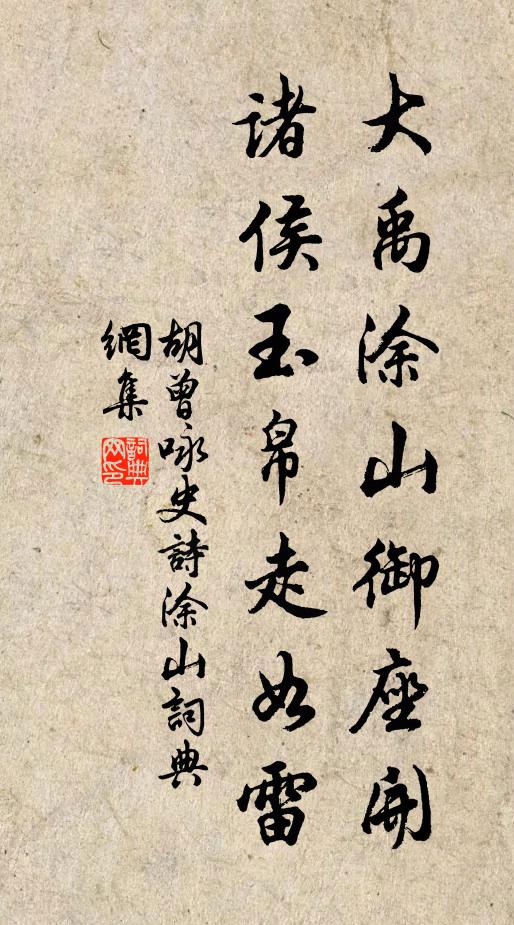 大禹涂山御座開
諸侯玉帛走如雷
胡曾咏史詩涂山詞典
網集
詞典
网印